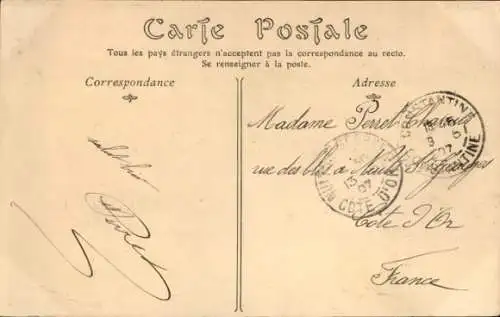 Carte Postale
Tous les pays étrangers n'acceptent pas la correspondance au recto.
Se renseigner à la poste.
Correspondance
Adresse
Madame Perret
rue des à Nuits St Georges
Côte d'Or
France
CONSTANTINE
07
CONSTANTINE
13
07
CÔTE D'OR